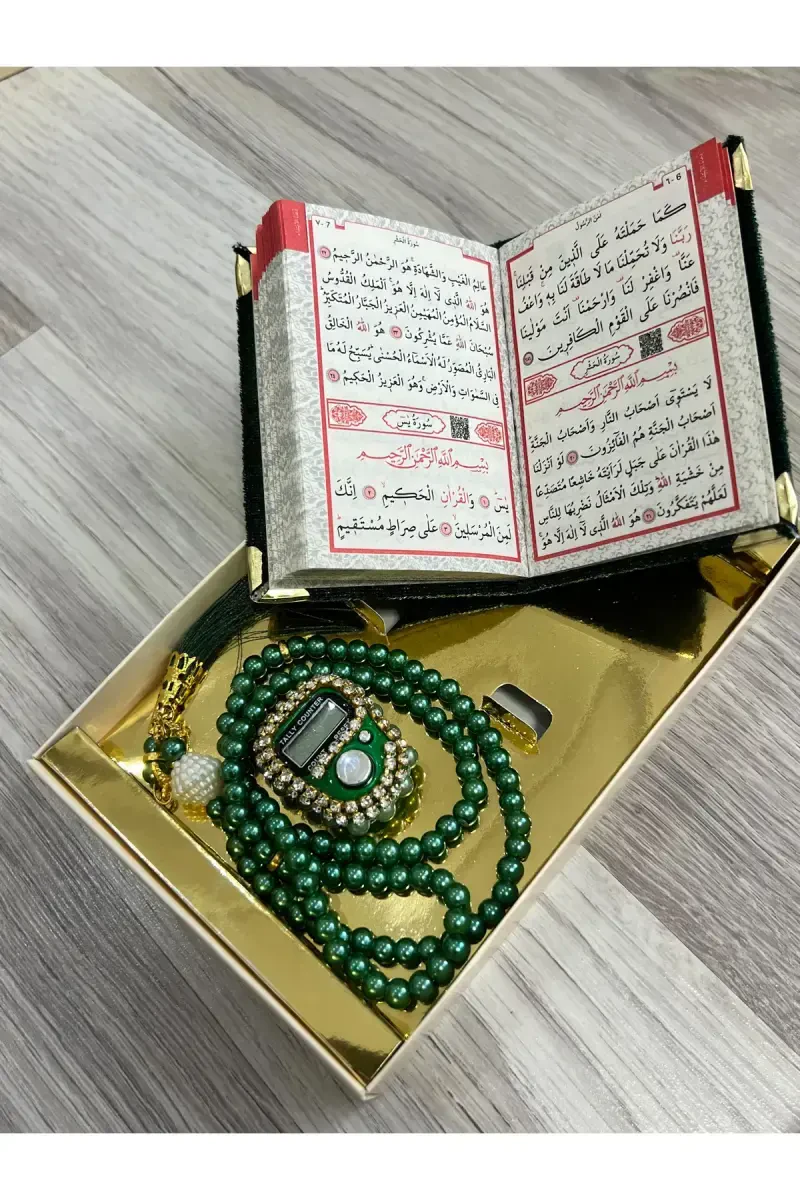 ٦-6
اٰمَنَ الرَّسُولُ
كَمَا حَمَلْتَهُ عَلَى الَّذٖينَ مِنْ قَبْلِنَا
رَبَّنَا وَلَا تُحَمِّلْنَا مَا لَا طَاقَةَ لَنَا بِهٖ وَاعْفُ
عَنَّا وَاغْفِرْ لَنَا وَارْحَمْنَا اَنْتَ مَوْلٰينَا
فَانْصُرْنَا عَلَى الْقَوْمِ الْكَافِرٖينَ
سُورَةُ الْحَشْرِ
بِسْمِ اللّٰهِ الرَّحْمٰنِ الرَّحٖيمِ
لَا يَسْتَوٖى اَصْحَابُ النَّارِ وَاَصْحَابُ الْجَنَّةِ
اَصْحَابُ الْجَنَّةِ هُمُ الْفَٓائِزُونَ ٢٠ لَوْ اَنْزَلْنَا
هٰذَا الْقُرْاٰنَ عَلٰى جَبَلٍ لَرَاَيْتَهُ خَاشِعًا مُتَصَدِّعًا
مِنْ خَشْيَةِ اللّٰهِ وَتِلْكَ الْاَمْثَالُ نَضْرِبُهَا لِلنَّاسِ
لَعَلَّهُمْ يَتَفَكَّرُونَ ٢١ هُوَ اللّٰهُ الَّذٖى لَٓا اِلٰهَ اِلَّا هُوَ
٧-7
سُورَةُ الْحَشْرِ
عَالِمُ الْغَيْبِ وَالشَّهَادَةِ هُوَ الرَّحْمٰنُ الرَّحٖيمُ ٢٢
هُوَ اللّٰهُ الَّذٖى لَٓا اِلٰهَ اِلَّا هُوَ اَلْمَلِكُ الْقُدُّوسُ
السَّلَامُ الْمُؤْمِنُ الْمُهَيْمِنُ الْعَزٖيزُ الْجَبَّارُ الْمُتَكَبِّرُ
سُبْحَانَ اللّٰهِ عَمَّا يُشْرِكُونَ ٢٣ هُوَ اللّٰهُ الْخَالِقُ
الْبَارِئُ الْمُصَوِّرُ لَهُ الْاَسْمَٓاءُ الْحُسْنٰى يُسَبِّحُ لَهُ مَا
فِى السَّمٰوَاتِ وَالْاَرْضِ وَهُوَ الْعَزٖيزُ الْحَكٖيمُ ٢٤
سُورَةُ يٰسٓ
بِسْمِ اللّٰهِ الرَّحْمٰنِ الرَّحٖيمِ
يٰسٓ ١ وَالْقُرْاٰنِ الْحَكٖيمِ ٢ اِنَّكَ
لَمِنَ الْمُرْسَلٖينَ ٣ عَلٰى صِرَاطٍ مُسْتَقٖيمٍ
TALLY COUNTER